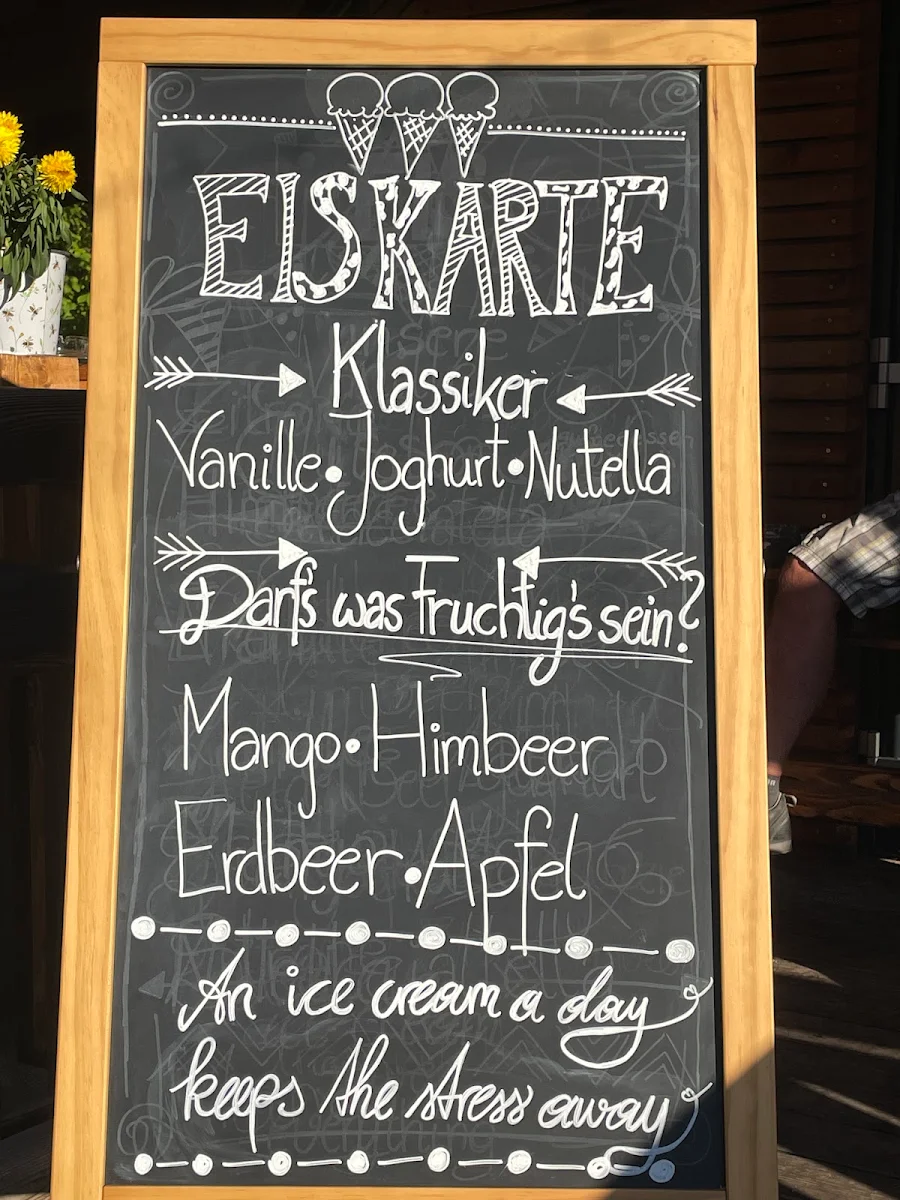 EISKARTE
Klassiker
Vanille • Joghurt • Nutella
Darf's was Fruchtig's sein?
Mango • Himbeer
Erdbeer • Apfel
An ice cream a day
keeps the stress away